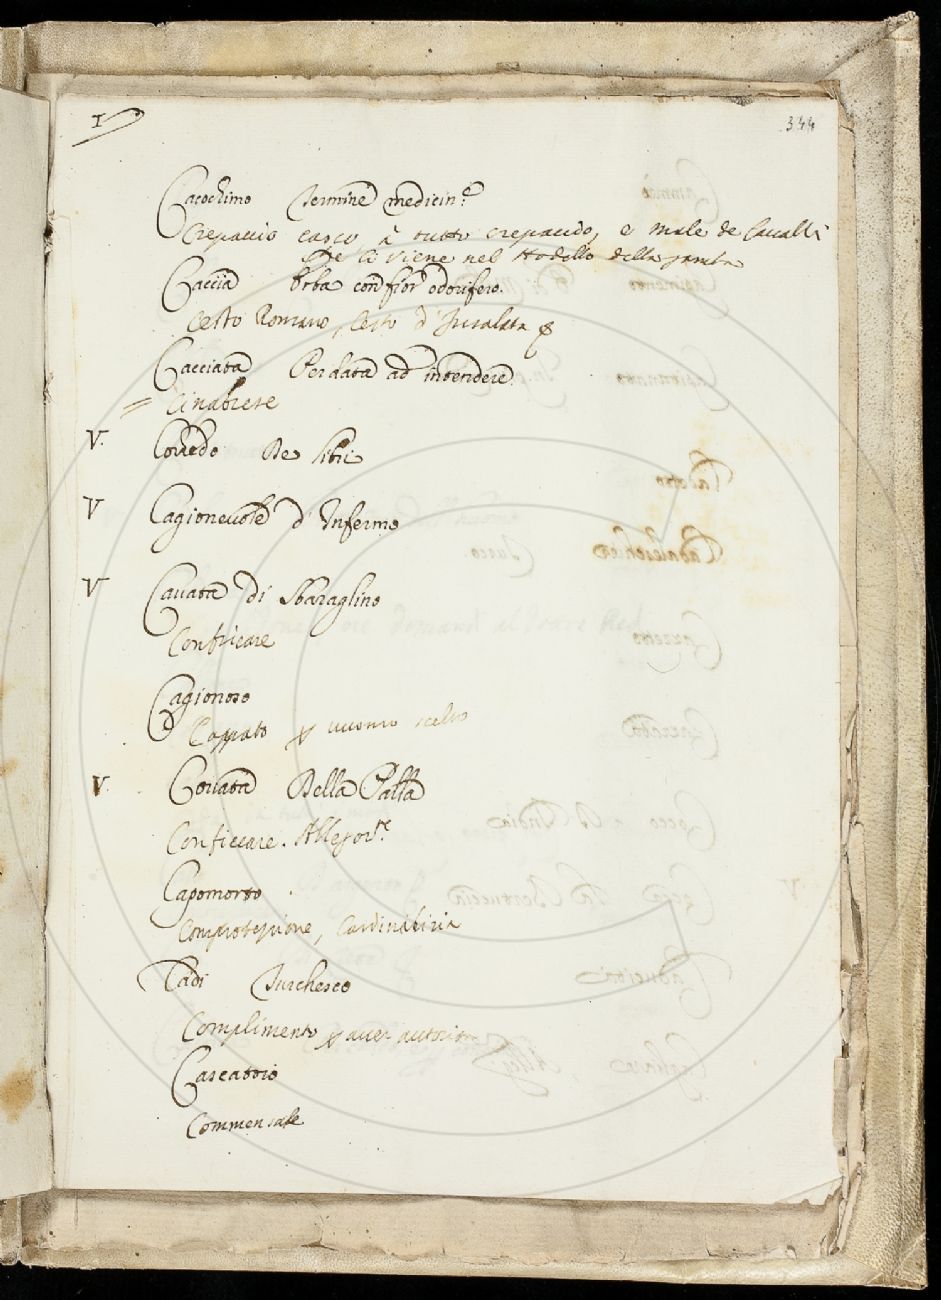 1
344
Cacochimo Termine medicin.e
Crepaccio casco à tutto crepaccio, e male de Cavalli
che li viene nel Nodello della gamba
Caccia Erba con fior odorifero.
Cesto Romano, Cesto d'Insalata
Cacciata Per data ad intendere.
Cinabrese
V. Corredo De libri
V Cagionevole d'Infermo
V Cavata di Sbaraglino
Confricare
Cagionoso
Cappato p uuomo scelto
V. Covata Della Palla
Conficcare. Allegor.te
Capomorto
Comprotezione,
Cadi Turchesco
Complimento p aver autorità
Cascaticcio
Commensale